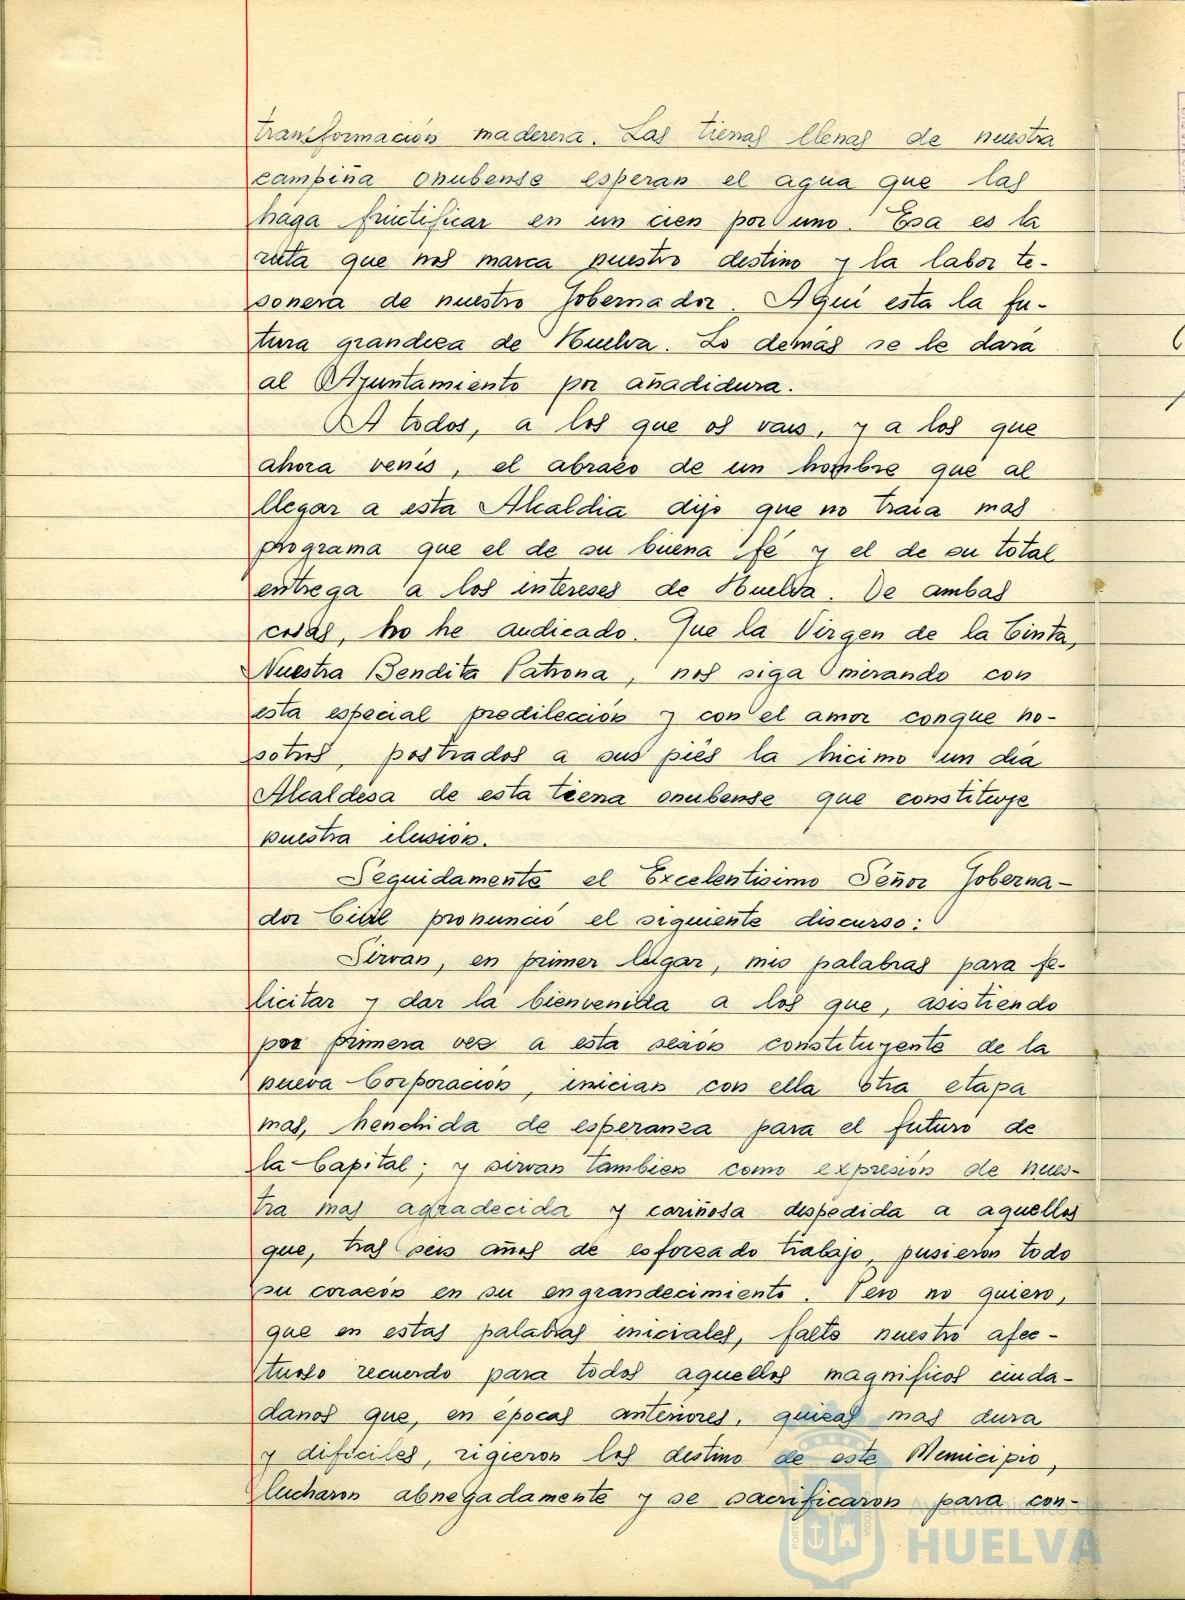 transformación maderera. Las tierras llenas de nuestra
campiña onubense esperan el agua que las
haga fructificar en un cien por uno. Esa es la
ruta que nos marca nuestro destino y la labor te-
sonera de nuestro Gobernador. Aquí esta la fu-
tura grandeza de Huelva. Lo demás se le dará
al Ayuntamiento por añadidura.
A todos, a los que os vais, y a los que
ahora venís, el abrazo de un hombre que al
llegar a esta Alcaldia dijo que no traía mas
programa que el de su buena fé y el de su total
entrega a los intereses de Huelva. De ambas
cosas, no he audicado. Que la Virgen de la Cinta,
Nuestra Bendita Patrona, nos siga mirando con
esta especial predilección y con el amor conque no-
sotros, postrados a sus piés la hicimo un día
Alcaldesa de esta tierra onubense que constituye
nuestra ilusión.
Seguidamente el Excelentisimo Señor Goberna-
dor Civil pronunció el siguiente discurso:
Sirvan, en primer lugar, mis palabras para fe-
licitar y dar la bienvenida a los que, asistiendo
por primera vez a esta sesión constituyente de la
nueva Corporación, inician con ella otra etapa
mas, henchida de esperanza para el futuro de
la Capital; y sirvan tambien como expresión de nues-
tra mas agradecida y cariñosa despedida a aquellos
que, tras seis años de esforzado trabajo, pusieron todo
su corazón en su engrandecimiento. Pero no quiero,
que en estas palabras iniciales, falte nuestro afec-
tuoso recuerdo para todos aquellos magnificos ciuda-
danos que, en épocas anteriores, quizas mas dura
y dificiles, rigieron los destino de este Municipio,
lucharon abnegadamente y se sacrificaron para con-
Ayuntamiento de
HUELVA